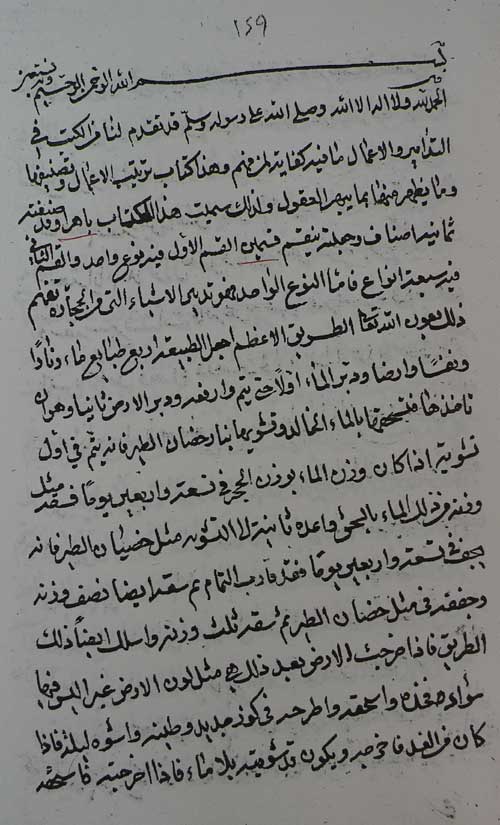 ١٤٩
بسم الله الرحمن الرحيم وبه نستعين
الحمد لله ولا اله الا الله وصلى الله على رسوله وسلم قد تقدم لنا من الكتب في
التدابير والاعمال ما فيه كفاية لمن فهم وهذا كتاب ترتيب الاعمال وتصنيفها
وما يظهر منها مما يبهر العقول ولذلك سميت هذا الكتاب باهرا وقد صنفته
ثمانية اصناف وجملته ينقسم قسمين القسم الاول فيه نوع واحد والقسم الثاني
فيه سبعة انواع فاما النوع الواحد فهو تدبير الاشياء التي من الحجارة تفهم
ذلك بعون الله تعالى الطريق الاعظم اجعل الطبيعة اربع طبايع ماء ونارا
ونفسا وارضا ودبر الماء اولا حتى يتم وارفعه ودبر الارض ثانيا وهو ان
تاخذها فتسحقها بالماء الخالد وتشويها بنار حضان الطير فانه يتم في اول
تشوية اذا كان وزن الماء بوزن الحجر في تسعة واربعين يوما فسقه مثل
وزنه من ذلك الماء بالسحق واعده ثانية الى التشوية مثل حضان الطير فانه
يجف في تسعة واربعين يوما فقد قارب التمام ثم سقه ايضا نصف وزنه
وجففه في مثل حضان الطير ثم سقه ثلث وزنه واسلك ايضا ذلك
الطريق فاذا خرجت الارض بعد ذلك هي مثل لون الارض غير اليبس فيهما
سواء فخذه واسحقه واطرحه في كوز جديد وطينه واشوه ليلة فاذا
كان من الغد فاخرجه ويكون قد شويته بلا ماء فاذا اخرجته فاسحقه